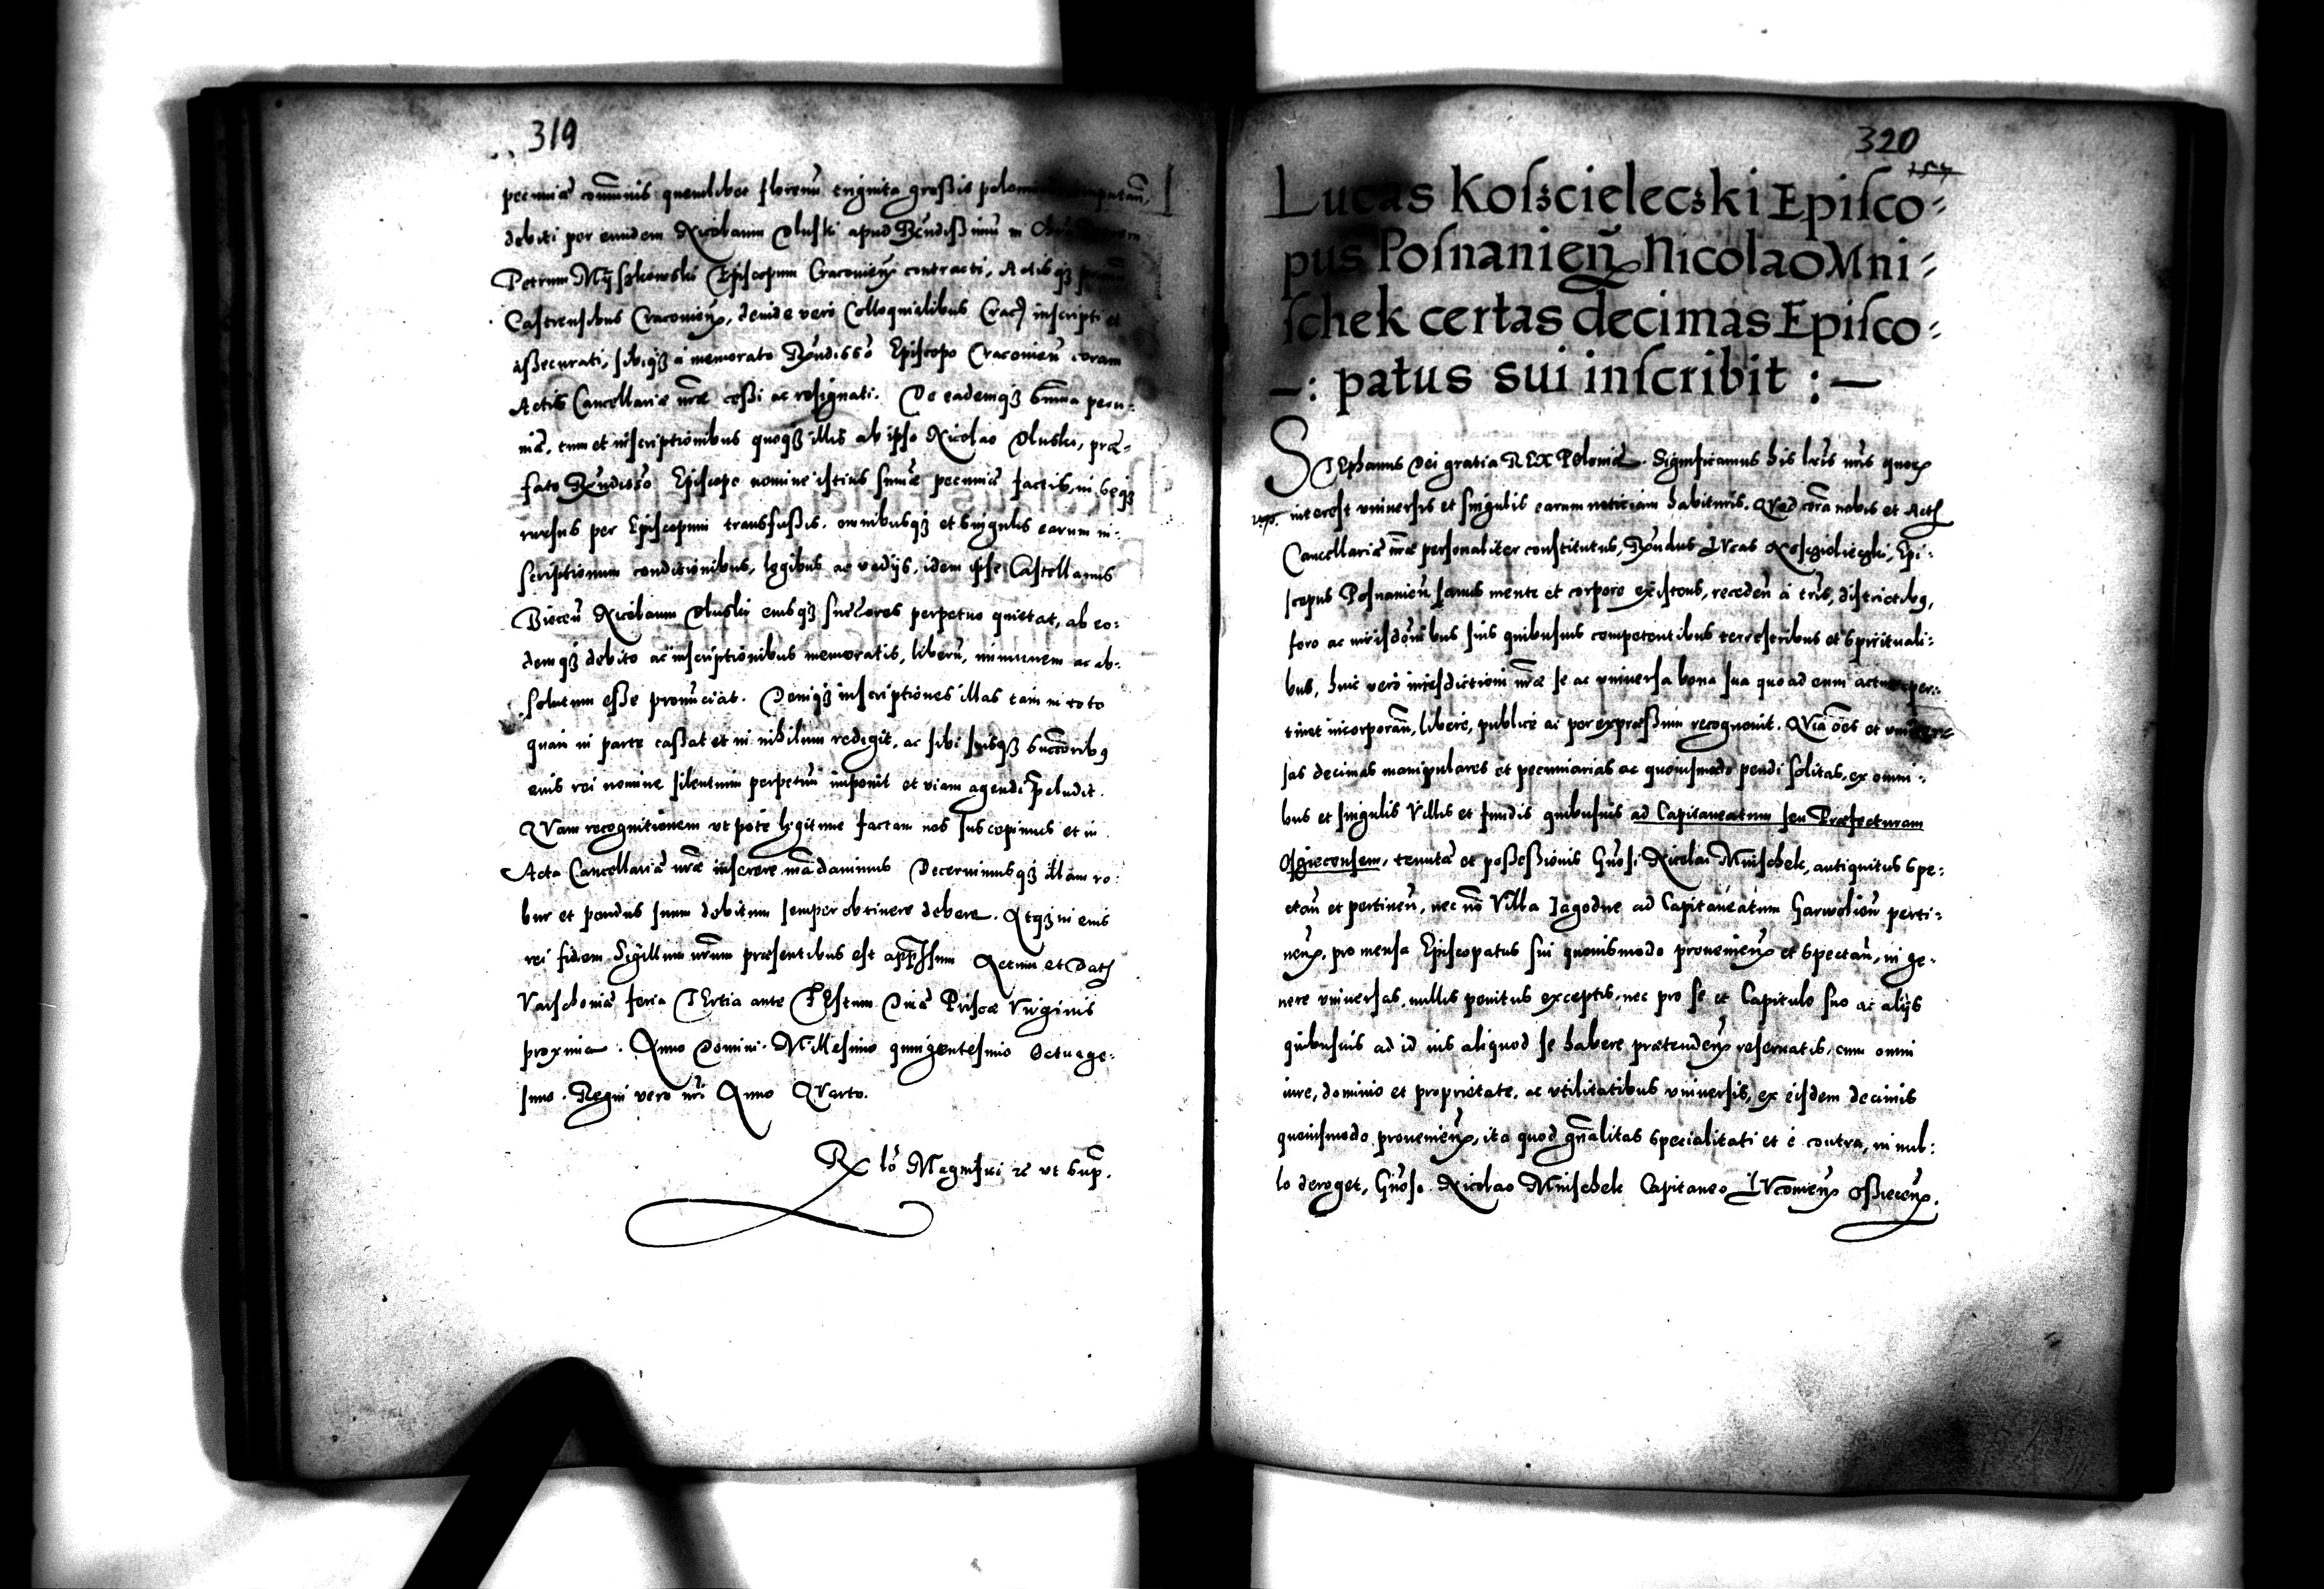 319
pecuniæ com̃unis quemlibet florenũ triginta großis polonic
debiti per eundem Nicolaum Dluski apud Rẽndißimũ in
Petrum Myszkowski Episcopum Cracovieñ contracti, Actisq3
Castrensibus Cracovieñ, deinde vero Colloquialibus Crac inscripti et
aßecurati, sibiq3 a memorato Rñdisso Episcopo Cracovieñ coram
Actis Cancellariæ nr̃æ ceßi ac resignati. De eademq3 sum̃a pecu-
niæ, tum et inscriptionibus quoq3 illis ab ipso Nicolao Dluski, præ-
fato Rñdisso Episcopo nomine istius sum̃æ pecuniæ factis, in seq3
rursus per Episcopum transfußis, omnibusq3 et singulis earum in-
scriptionum conditionibus, legibus ac vadijs, idem ipse Castellanus
Bieceñ Nicolaum Dluski eiusq3 succores perpetuo quietat, ab eo-
demq3 debito ac inscriptionibus memoratis, liberũ, immunem ac ab-
solutum eße pronũciat. Deniq3 inscriptiones illas tam in toto
quam in parte caßat et in nihilum redigit, ac sibi suisq3 succorib9
eius rei nomine silentium perpetũ imponit et viam agendi p̃cludit.
QVam recognitionem ut pote legitime factam nos suscepimus et in
Acta Cancellariæ nr̃æ inserere mãdavimus Decernimusq3 illam ro-
bur et pondus suum debitum semper obtinere debere. Atq3 in eius
rei fidem Sigillum nr̃um præsentibus est app̃ssum Actum et Dat
Varschoviæ feria TErtia ante FEstum Divæ Priscæ Virginis
proxima. Anno Domini Millesimo quingentesimo Octuage-
simo. Regni vero nr̃i Anno QVarto.
Rx lõ Magnifici rc ut sup̃.
320
Lucas Kosscielecski Episco-
pus Posnanieñ Nicolao Mni-
schek certas decimas Episco-
-: patus sui inscribit :-
STEphanus Dei gratia REX Poloniæ. Significamus his lr̃is nr̃is quor
interest universis et singulis earum noticiam habituris. QVod corã nobis et Act
Cancellariæ nr̃æ personaliter constitutus, Rñdus LVcas Koscziolieczki, Epi-
scopus Posnanieñ sanus mente et corpore existens, recedeñ a tr̃is, districtib9,
foro ac iurisdõnibus suis quibusuis competentibus terrestribus et spirituali-
bus, huic vero iurisdictioni nr̃æ se ac universa bona sua quo ad eum actum per-
tinet incorporañ, libere, publice ac per expræßum recognovit. QVia oẽs et univer-
sas decimas manipulares et pecuniarias ac quovismodo pendi solitas, ex omni-
bus et singulis Villis et fundis quibusuis ad Capitaneatum seu Præfecturam
Osziecensem, tenutæ et poßeßionis Gñosi Nicolai Mnischek, antiquitus spe-
ctañ et pertineñ, nec nõ Villa Jagodne ad Capitaneatum Garwolieñ perti-
neñ, pro mensa Episcopatus sui quovismodo provenieñ et spectañ, in ge-
nere universas, nullis penitus exceptis, nec pro se et Capitulo suo ac alijs
quibusuis ad id ius aliquod se habere prætendeñ reservatis, cum omni
iure, dominio et proprietate, ac utilitatibus universis, ex eisdem decimis
quovismodo provenieñ, ita quod gñalitas specialitati et e contra, in nul-
lo deroget, Gñoso Nicolao Mnischek Capitaneo LVcovieñ Oßieceñ.